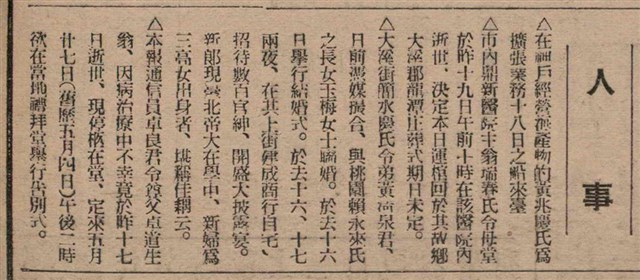 人事
△在神戶經營海產物的黃兆慶氏爲
擴張業務十八日之船來臺
△市內鼎新醫院主翁瑞春氏令母堂
於昨十九日午前十時在該醫院內
逝世、決定本日運棺回於其故鄉
大溪郡龍潭庄葬式期日未定。
△大溪街簡永慶氏令弟黃泉君、
日前憑媒撮合、與桃園賴永來氏
之長女玉梅女士婚。於去十六
日舉行結婚式。於去十六、十七
兩夜、在其上街成商行自宅、
招待數百官紳、開盛大披露宴。
新郎現臺北帝大在學中、新婦爲
三高女出身者、堪稱佳耦云。
△本報通信員卓良君令尊父卓道生
翁、因病治療中不幸竟於昨十七
日逝世、現停柩在堂、定來五月
廿七日(舊曆五月四日)午後二時
欲在當地禮拜堂舉行告別式。